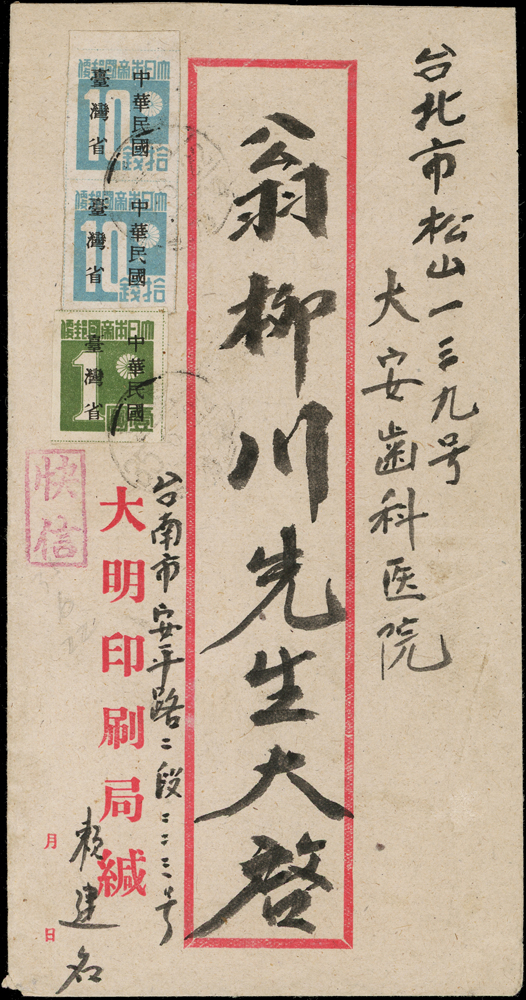 台北市松山一三九号
大安歯科医院
翁柳川先生大啓
台南市安平路二段二二三号
大明印刷局緘
賴建名
月 日
快信
大日本帝國郵便
10
拾錢
中華民國
臺灣省
大日本帝國郵便
10
拾錢
中華民國
臺灣省
大日本帝國郵便
1
壹圓
中華民國
臺灣省